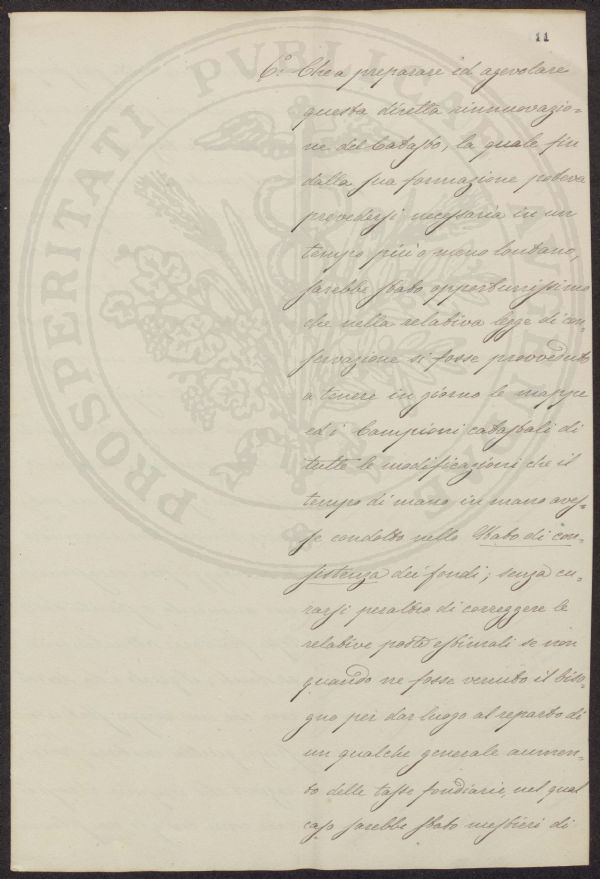 11
6.° Che a preparare ed agevolare
questa diretta rinnuovazio-
ne del Catasto, la quale fin
dalla sua formazione poteva
provedersi necessaria in un
tempo più o meno lontano,
sarebbe stato opportunissimo
che nella relativa legge di con-
servazione si fosse provveduto
a tenere in giorno le mappe
ed i Campioni catastali di
tutte le modificazioni che il
tempo di mano in mano aves-
se condotto nello Stato di con-
sistenza dei fondi; senza cu-
rarsi peraltro di correggere le
relative poste estimali se non
quando ne fosse venuto il biso-
gno per dar luogo al reparto di
un qualche generale aumen-
to delle tasse fondiarie, nel qual
caso sarebbe stato mestieri di
PROSPERITATI PVBLICAE AVGENDAE